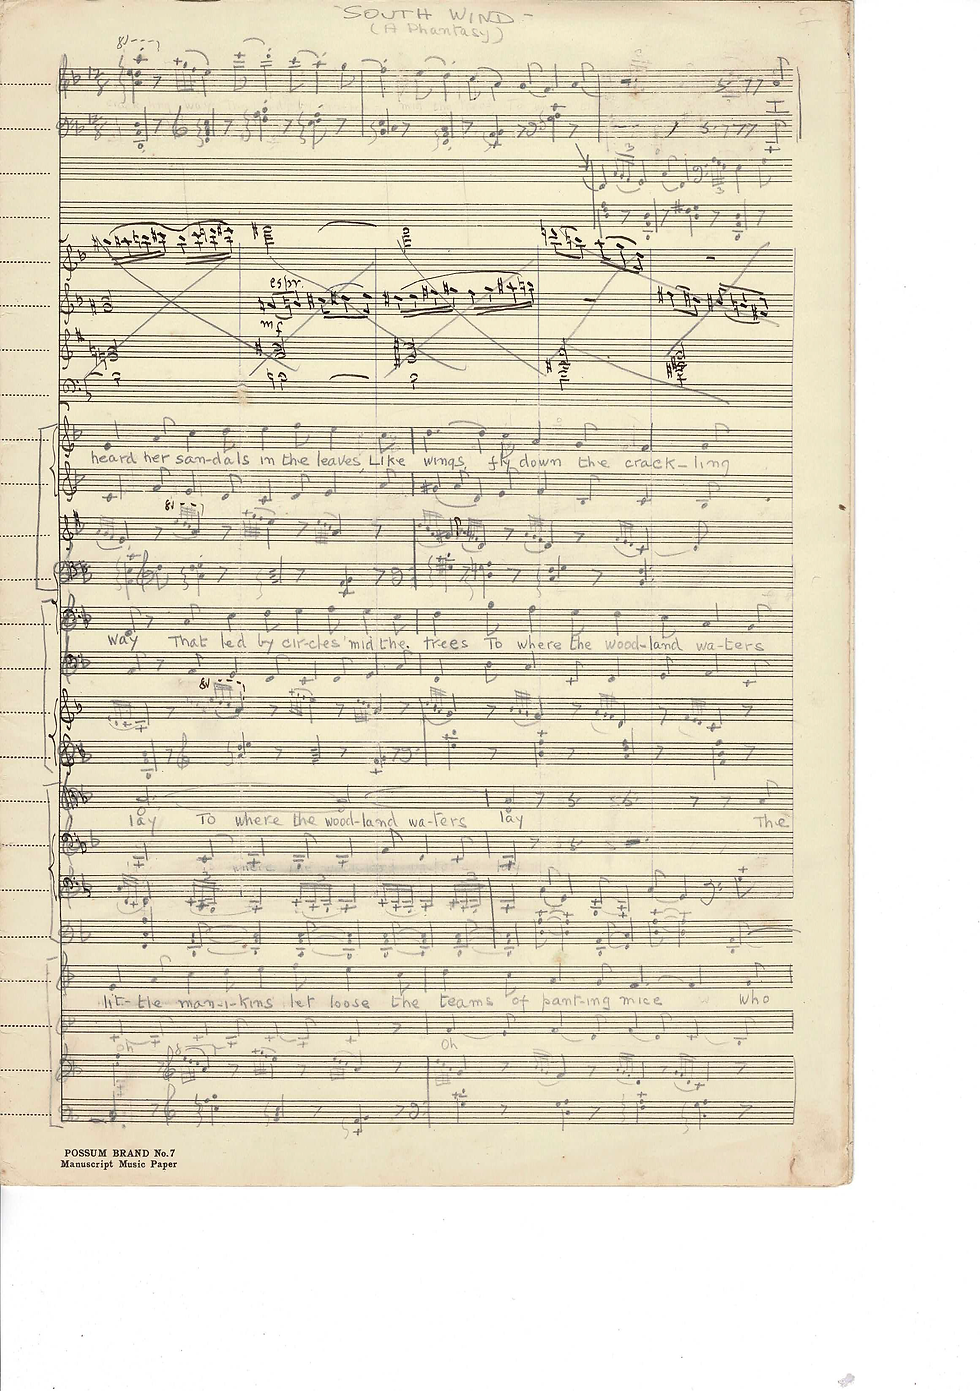 - SOUTH WIND -
(A Phantasy)
8v
espr.
mf
heard her san-dals in the leaves, Like wings, fly down the crack-ling
8v
way That led by cir-cles 'mid the trees To where the wood-land wa-ters
8v
lay To where the wood-land wa-ters lay The
3 3
lit-tle man-i-kins let loose the teams of pant-ing mice who
oh oh
8
POSSUM BRAND No.7
Manuscript Music Paper